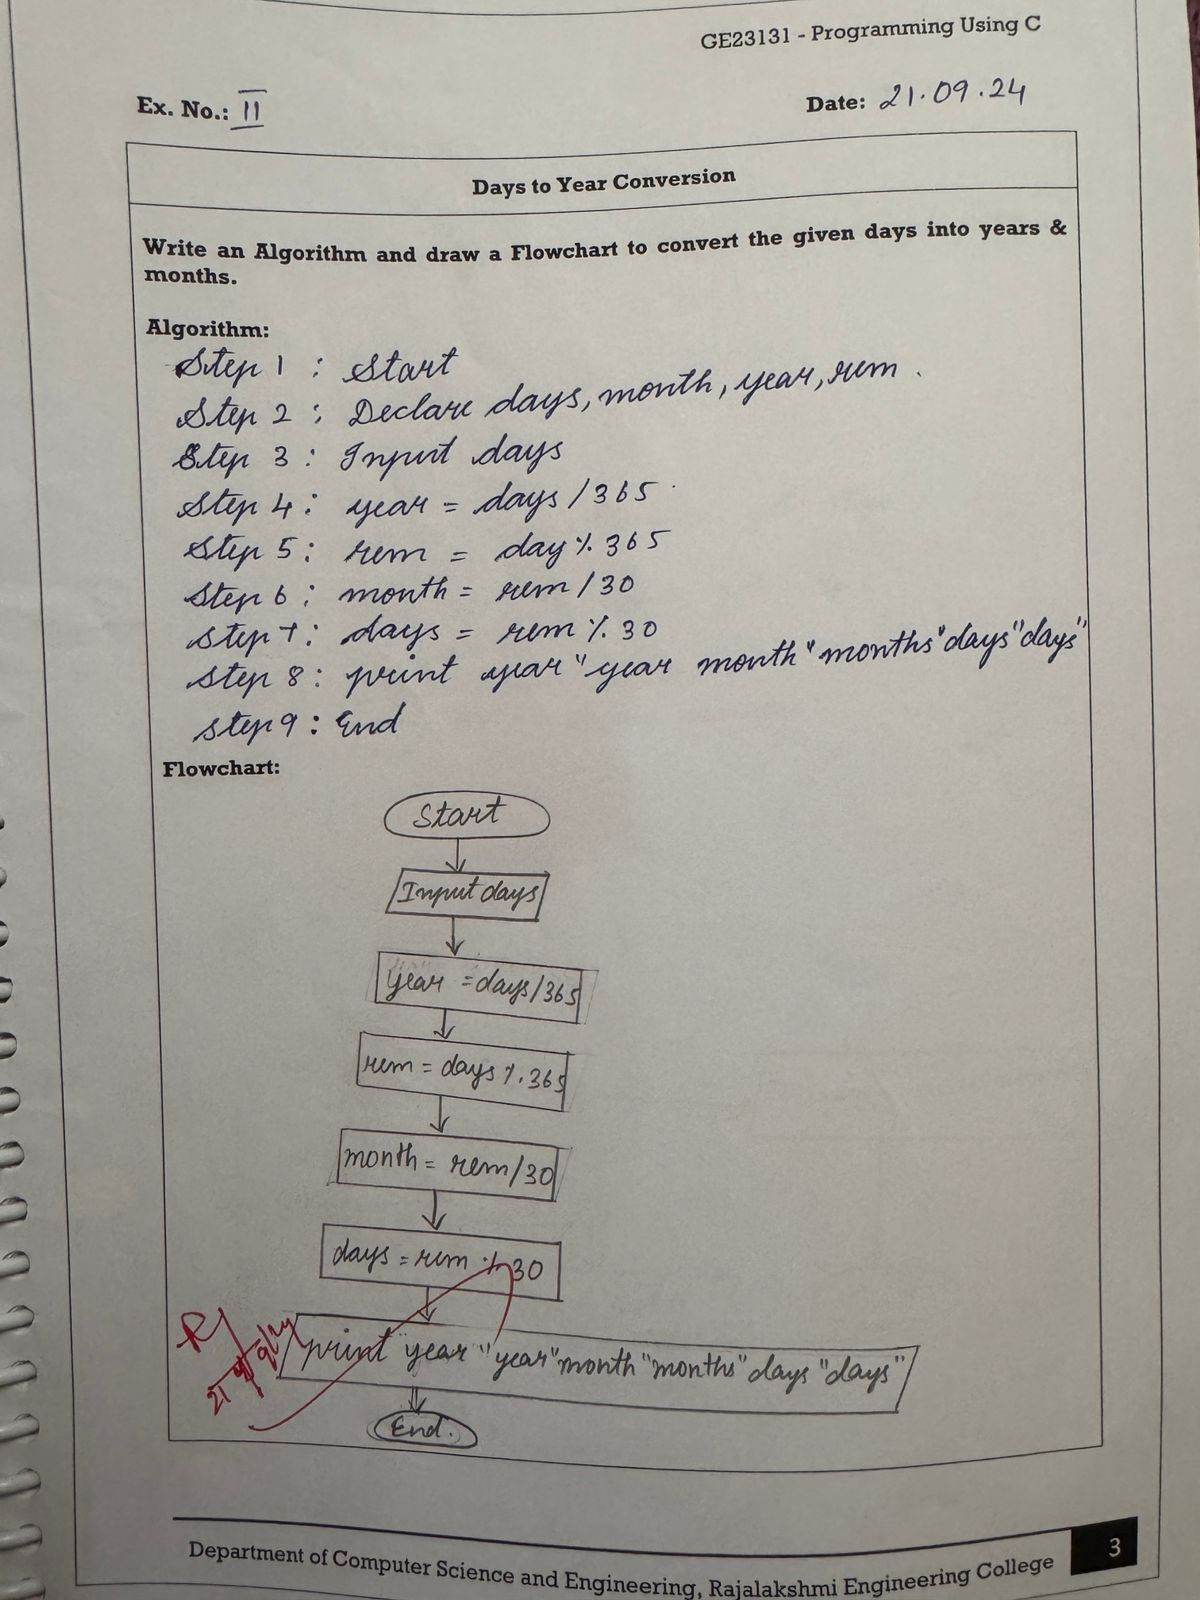 GE23131 - Programming Using C
Ex. No.: II
Date: 21.09.24
Days to Year Conversion
Write an Algorithm and draw a Flowchart to convert the given days into years &
months.
Algorithm:
Step 1 : Start
Step 2 : Declare days, month, year, rem .
Step 3 : Input days
Step 4 : year = days / 365
Step 5 : rem = day % 365
Step 6 : month = rem / 30
Step 7 : days = rem % 30
Step 8 : print year "year month "months" days "days"
Step 9 : End
Flowchart:
Start
Input days
year = days/365
rem = days %.365
month = rem/30
days = rem % 30
print year "year" month "months" days "days"
End.
Department of Computer Science and Engineering, Rajalakshmi Engineering College
3